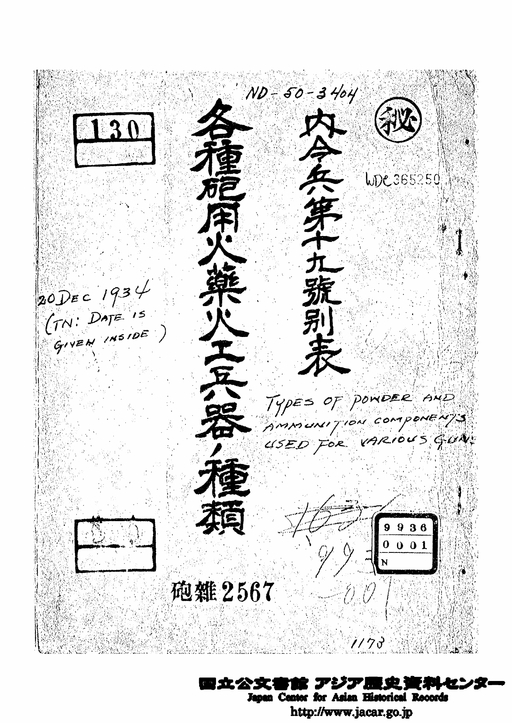 ND-50-3404
秘
130
WDC365250
内令兵第十九號別表
各種砲用火藥火工兵器ノ種類
20 DEC 1934
(TN: DATE IS
GIVEN INSIDE)
TYPES OF POWDER AND
AMMUNITION COMPONENTS
USED FOR VARIOUS GUNS
9936
0001
N
砲雜2567
1173
国立公文書館 アジア歴史資料センター
Japan Center for Asian Historical Records
http://www.jacar.go.jp